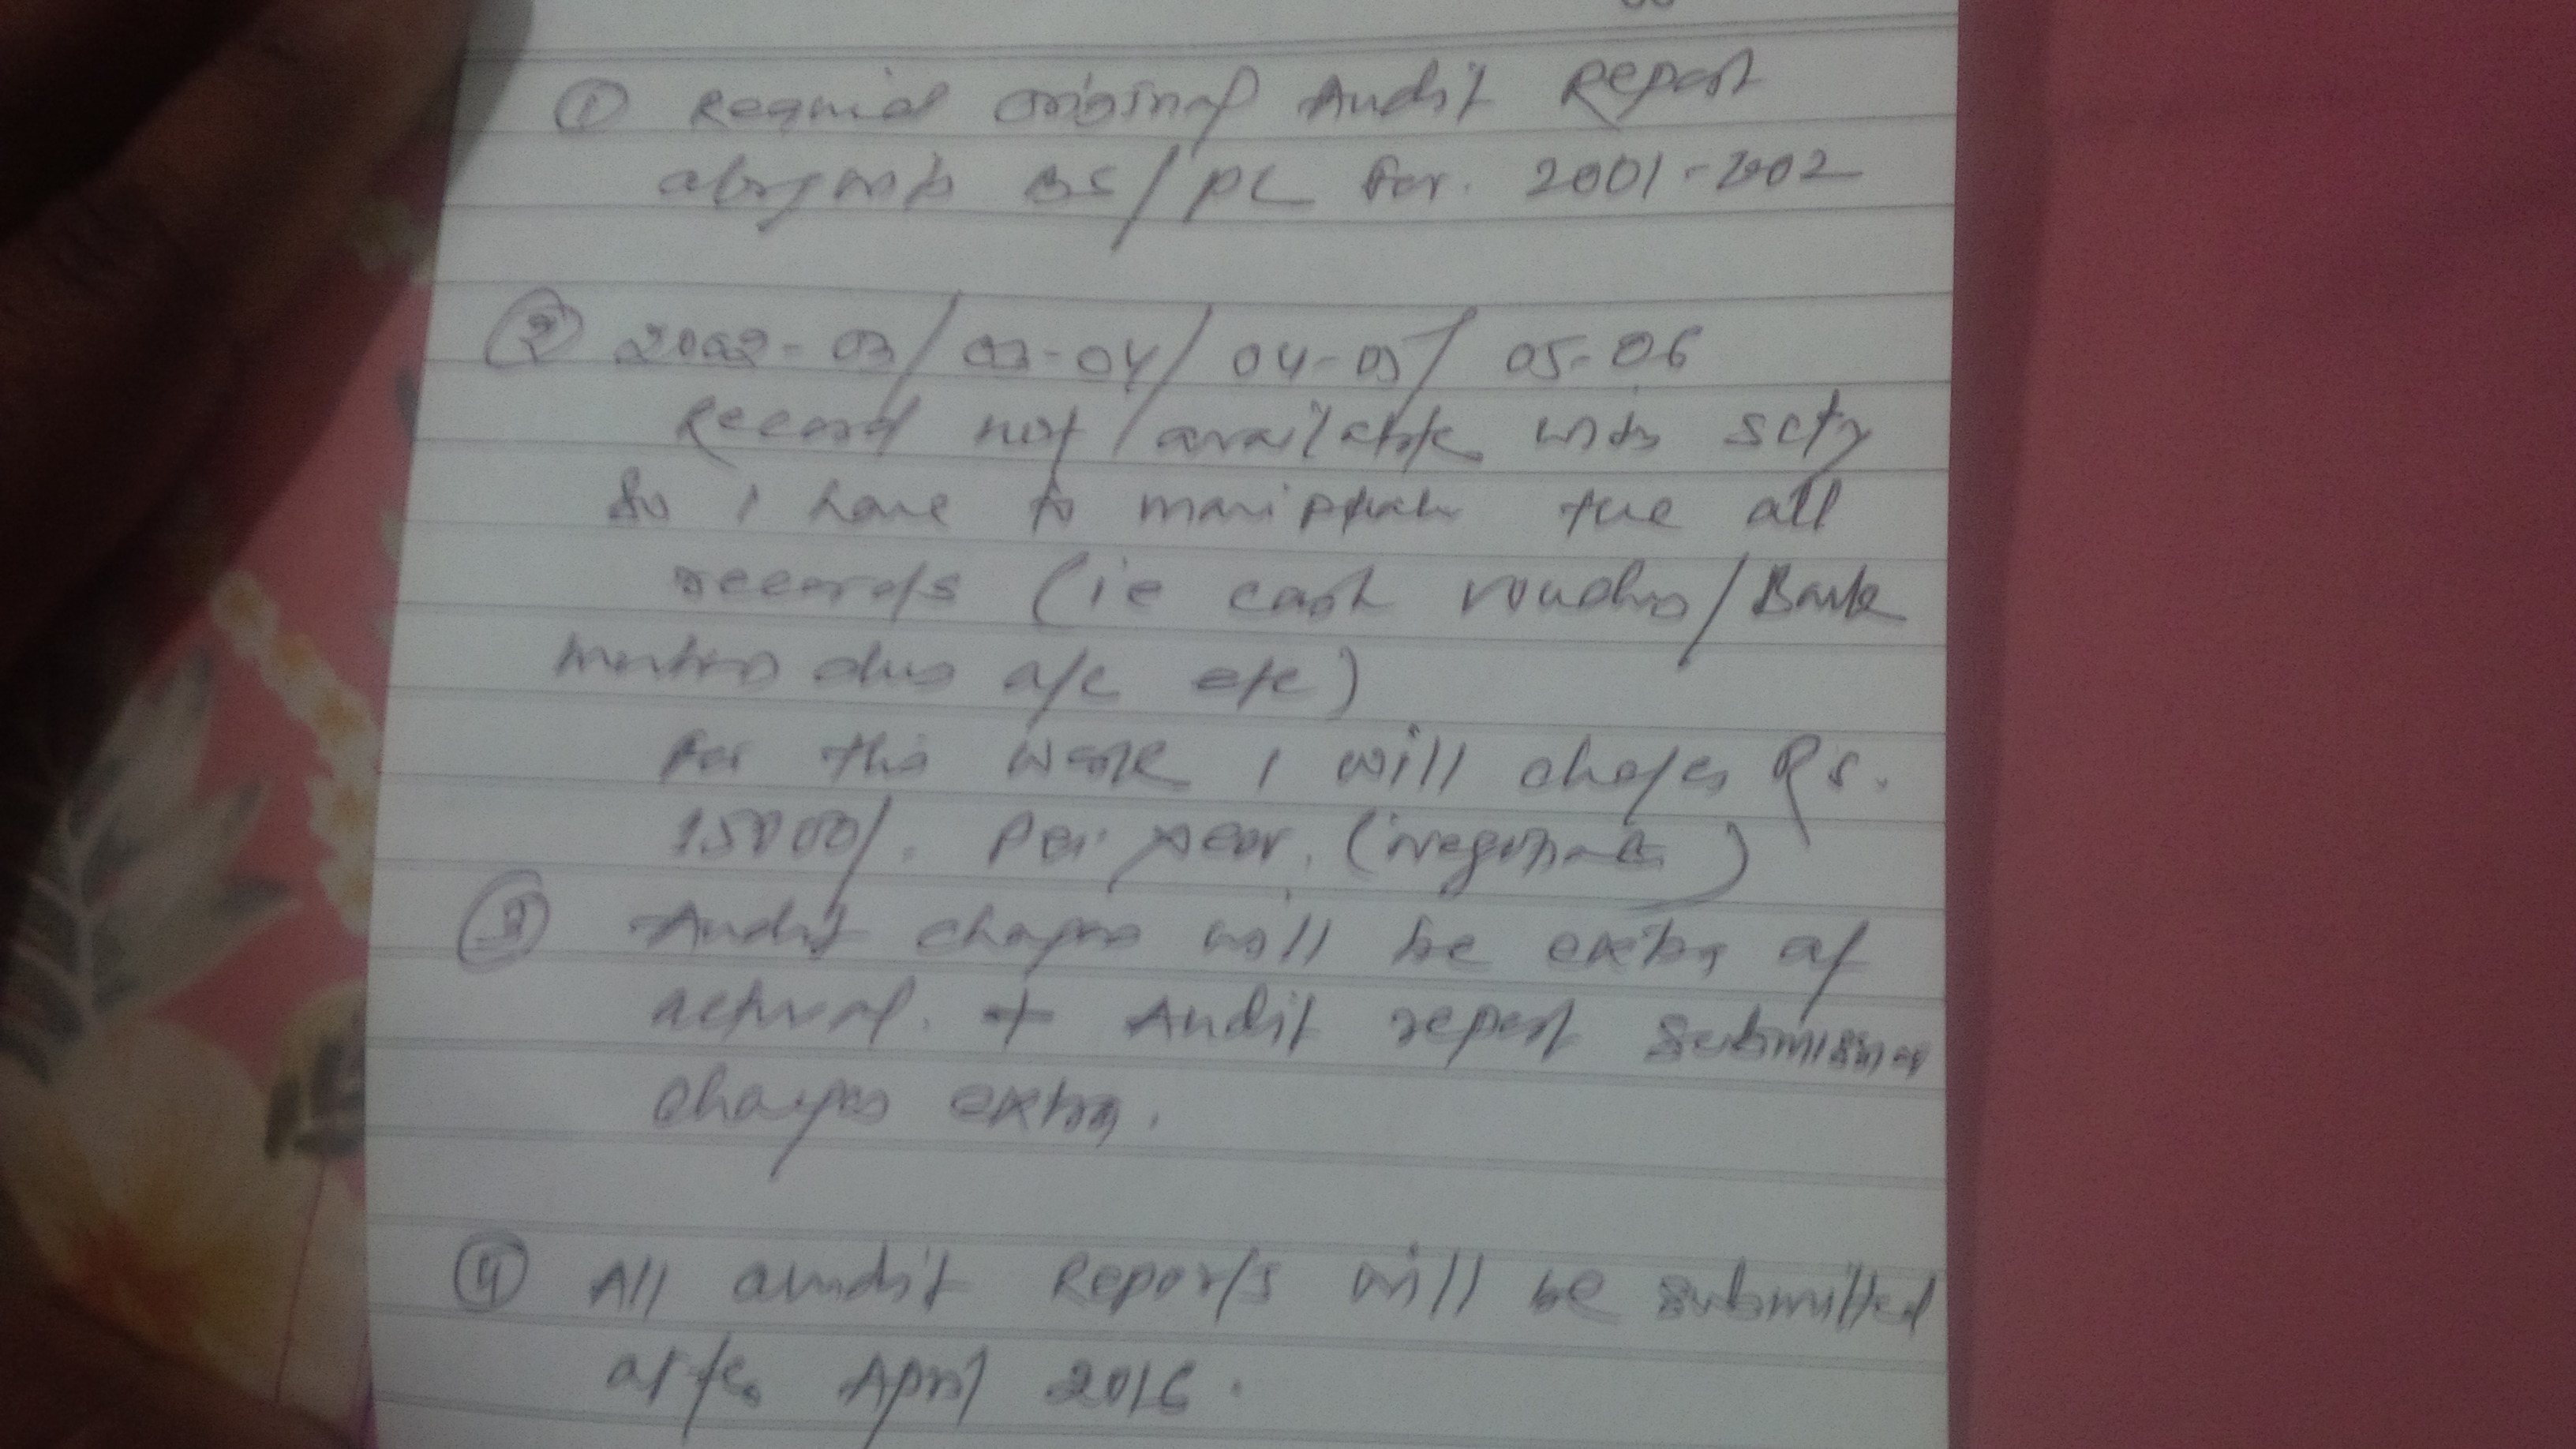 ① Required original Audit Report
alongwith BS/PL for. 2001-2002
② 2002-03/03-04/04-05/05-06
Record not available with scty
So I have to manipulate the all
records (ie cash vouchers/Bank
members dues a/c etc)
For this work I will charges Rs.
15000/. Per year.
③ Audit charges will be extra at
actual. + Audit report submission
charges extra.
④ All audit Reports will be submitted
after April 2016.